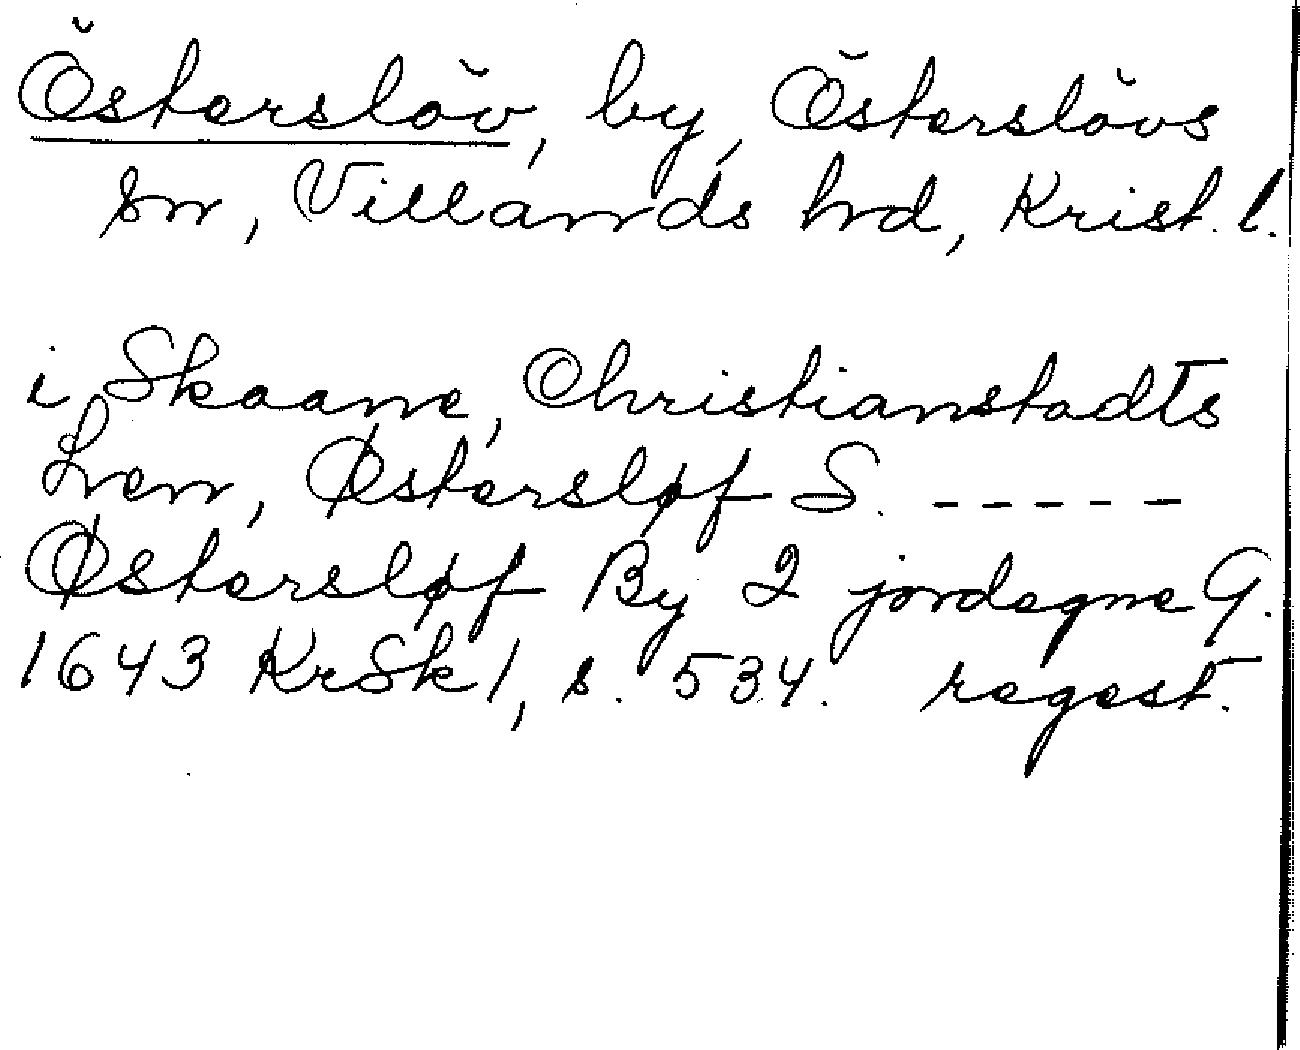 Österslöv, by, Österslövs
sn, Villands hrd, Krist. l.
i Skaane, Christianstadts
Len, Østersløf S. -----
Østersløf By 2 jordegne G.
1643 KrSk 1, s. 534. regest.